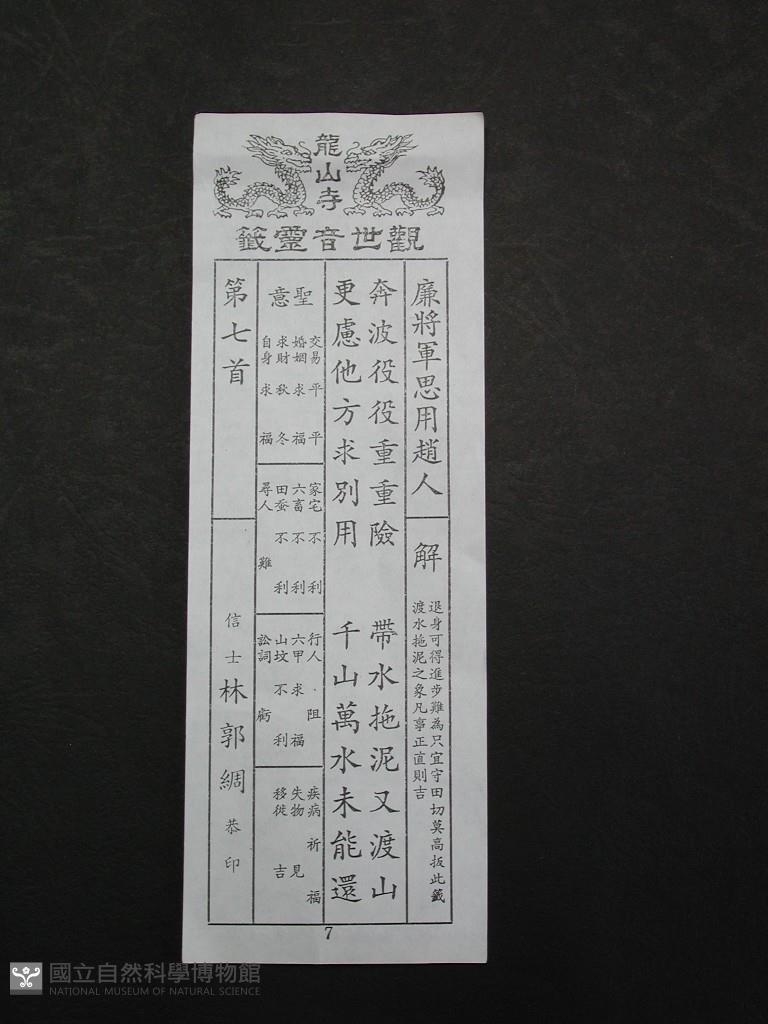 龍山寺
觀世音靈籤
廉將軍思用趙人
解
退身可得進步難為只宜守田切莫高扳此籤
渡水拖泥之象凡事正直則吉
奔波役役重重險　帶水拖泥又渡山
更慮他方求別用　千山萬水未能還
聖意
交易　平平
婚姻　求福
求財　秋冬
自身　求福
家宅　不利
六畜　不利
田蚕　不利
尋人　難
行人　阻
六甲　求福
山坟　不利
訟詞　虧
疾病　祈福
失物　見
移徙　吉
第七首
信士　林郭綢　恭印
7
國立自然科學博物館
NATIONAL MUSEUM OF NATURAL SCIENCE